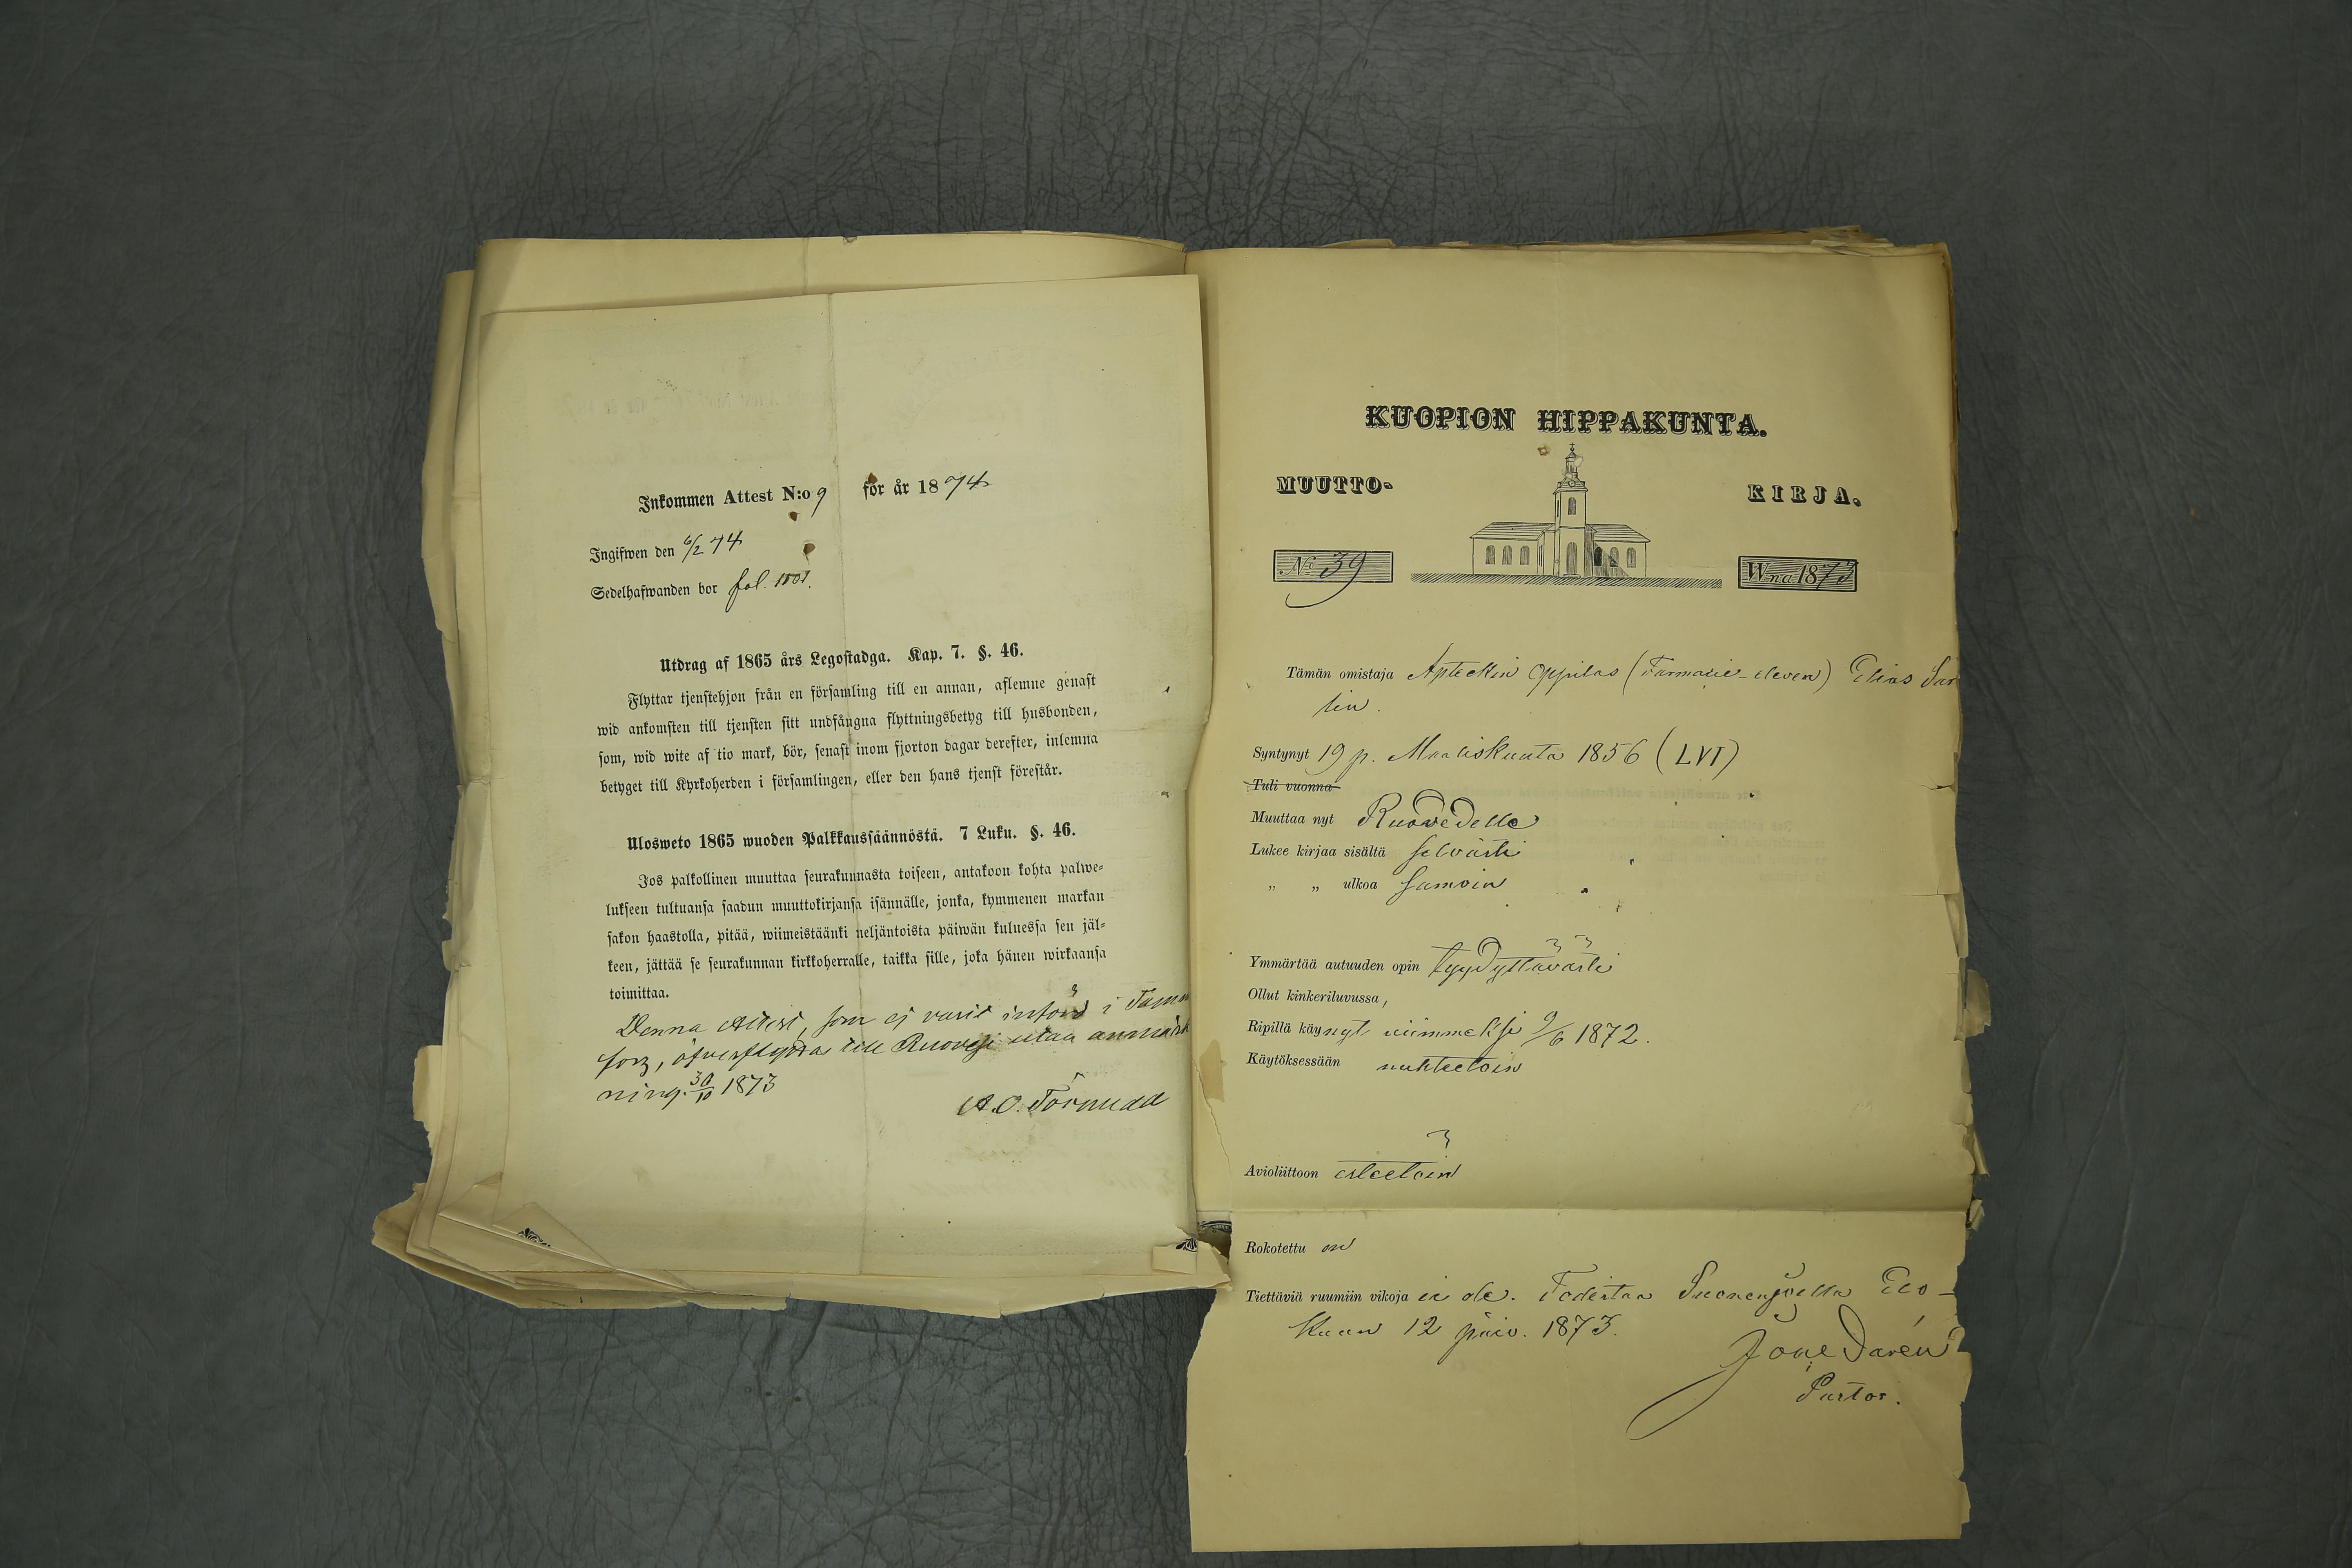 Inkommen Attest N:o 9 för år 1874
Ingifwen den 6/2 74
Sedelhafwanden bor fol. 1501.
Utdrag af 1865 års Legostadga. Kap. 7. §. 46.
Flyttar tjenstehjon från en församling till en annan, aflemne genast
wid ankomsten till tjensten sitt undfångna flyttningsbetyg till husbonden,
som, wid wite af tio mark, bör, senast inom fjorton dagar derefter, inlemna
betyget till Kyrkoherden i församlingen, eller den hans tjenst förestår.
Ulosweto 1865 wuoden Palkkaussäännöstä. 7 Luku. §. 46.
Jos palkollinen muuttaa seurakunnasta toiseen, antakoon kohta palwe-
lukseen tultuansa saadun muuttokirjansa isännälle, jonka, kymmenen markan
sakon haastolla, pitää, wiimeistäänki neljäntoista päiwän kuluessa sen jäl-
keen, jättää se seurakunnan kirkkoherralle, taikka sille, joka hänen wirkaansa
toimittaa.
Denna Attest, som ej varit införd i Tammer
fors, öfverflyttas till Ruovesi utan anmärk
ning. 30/10 1873
A. O. Törnudd
KUOPION HIPPAKUNTA.
MUUTTO- KIRJA.
No 39 Wna 1873
Tämän omistaja Apteekin Oppilas (Farmacie-eleven) Elias Sar
lin.
Syntynyt 19 p. Maaliskuuta 1856 (LVI)
Tuli vuonna
Muuttaa nyt Ruovedelle
Lukee kirjaa sisältä selvästi
„ „ ulkoa samoin
Ymmärtää autuuden opin tyydyttävästi
Ollut kinkeriluvussa,
Ripillä käynyt viimmeksi 9/6 1872.
Käytöksessään nuhteetoin
Avioliittoon esteetoin
Rokotettu on
Tiettäviä ruumiin vikoja ei ole. Todistaa Suonenjoella Elo-
Kuun 12 päiv. 1873.
Pastor.